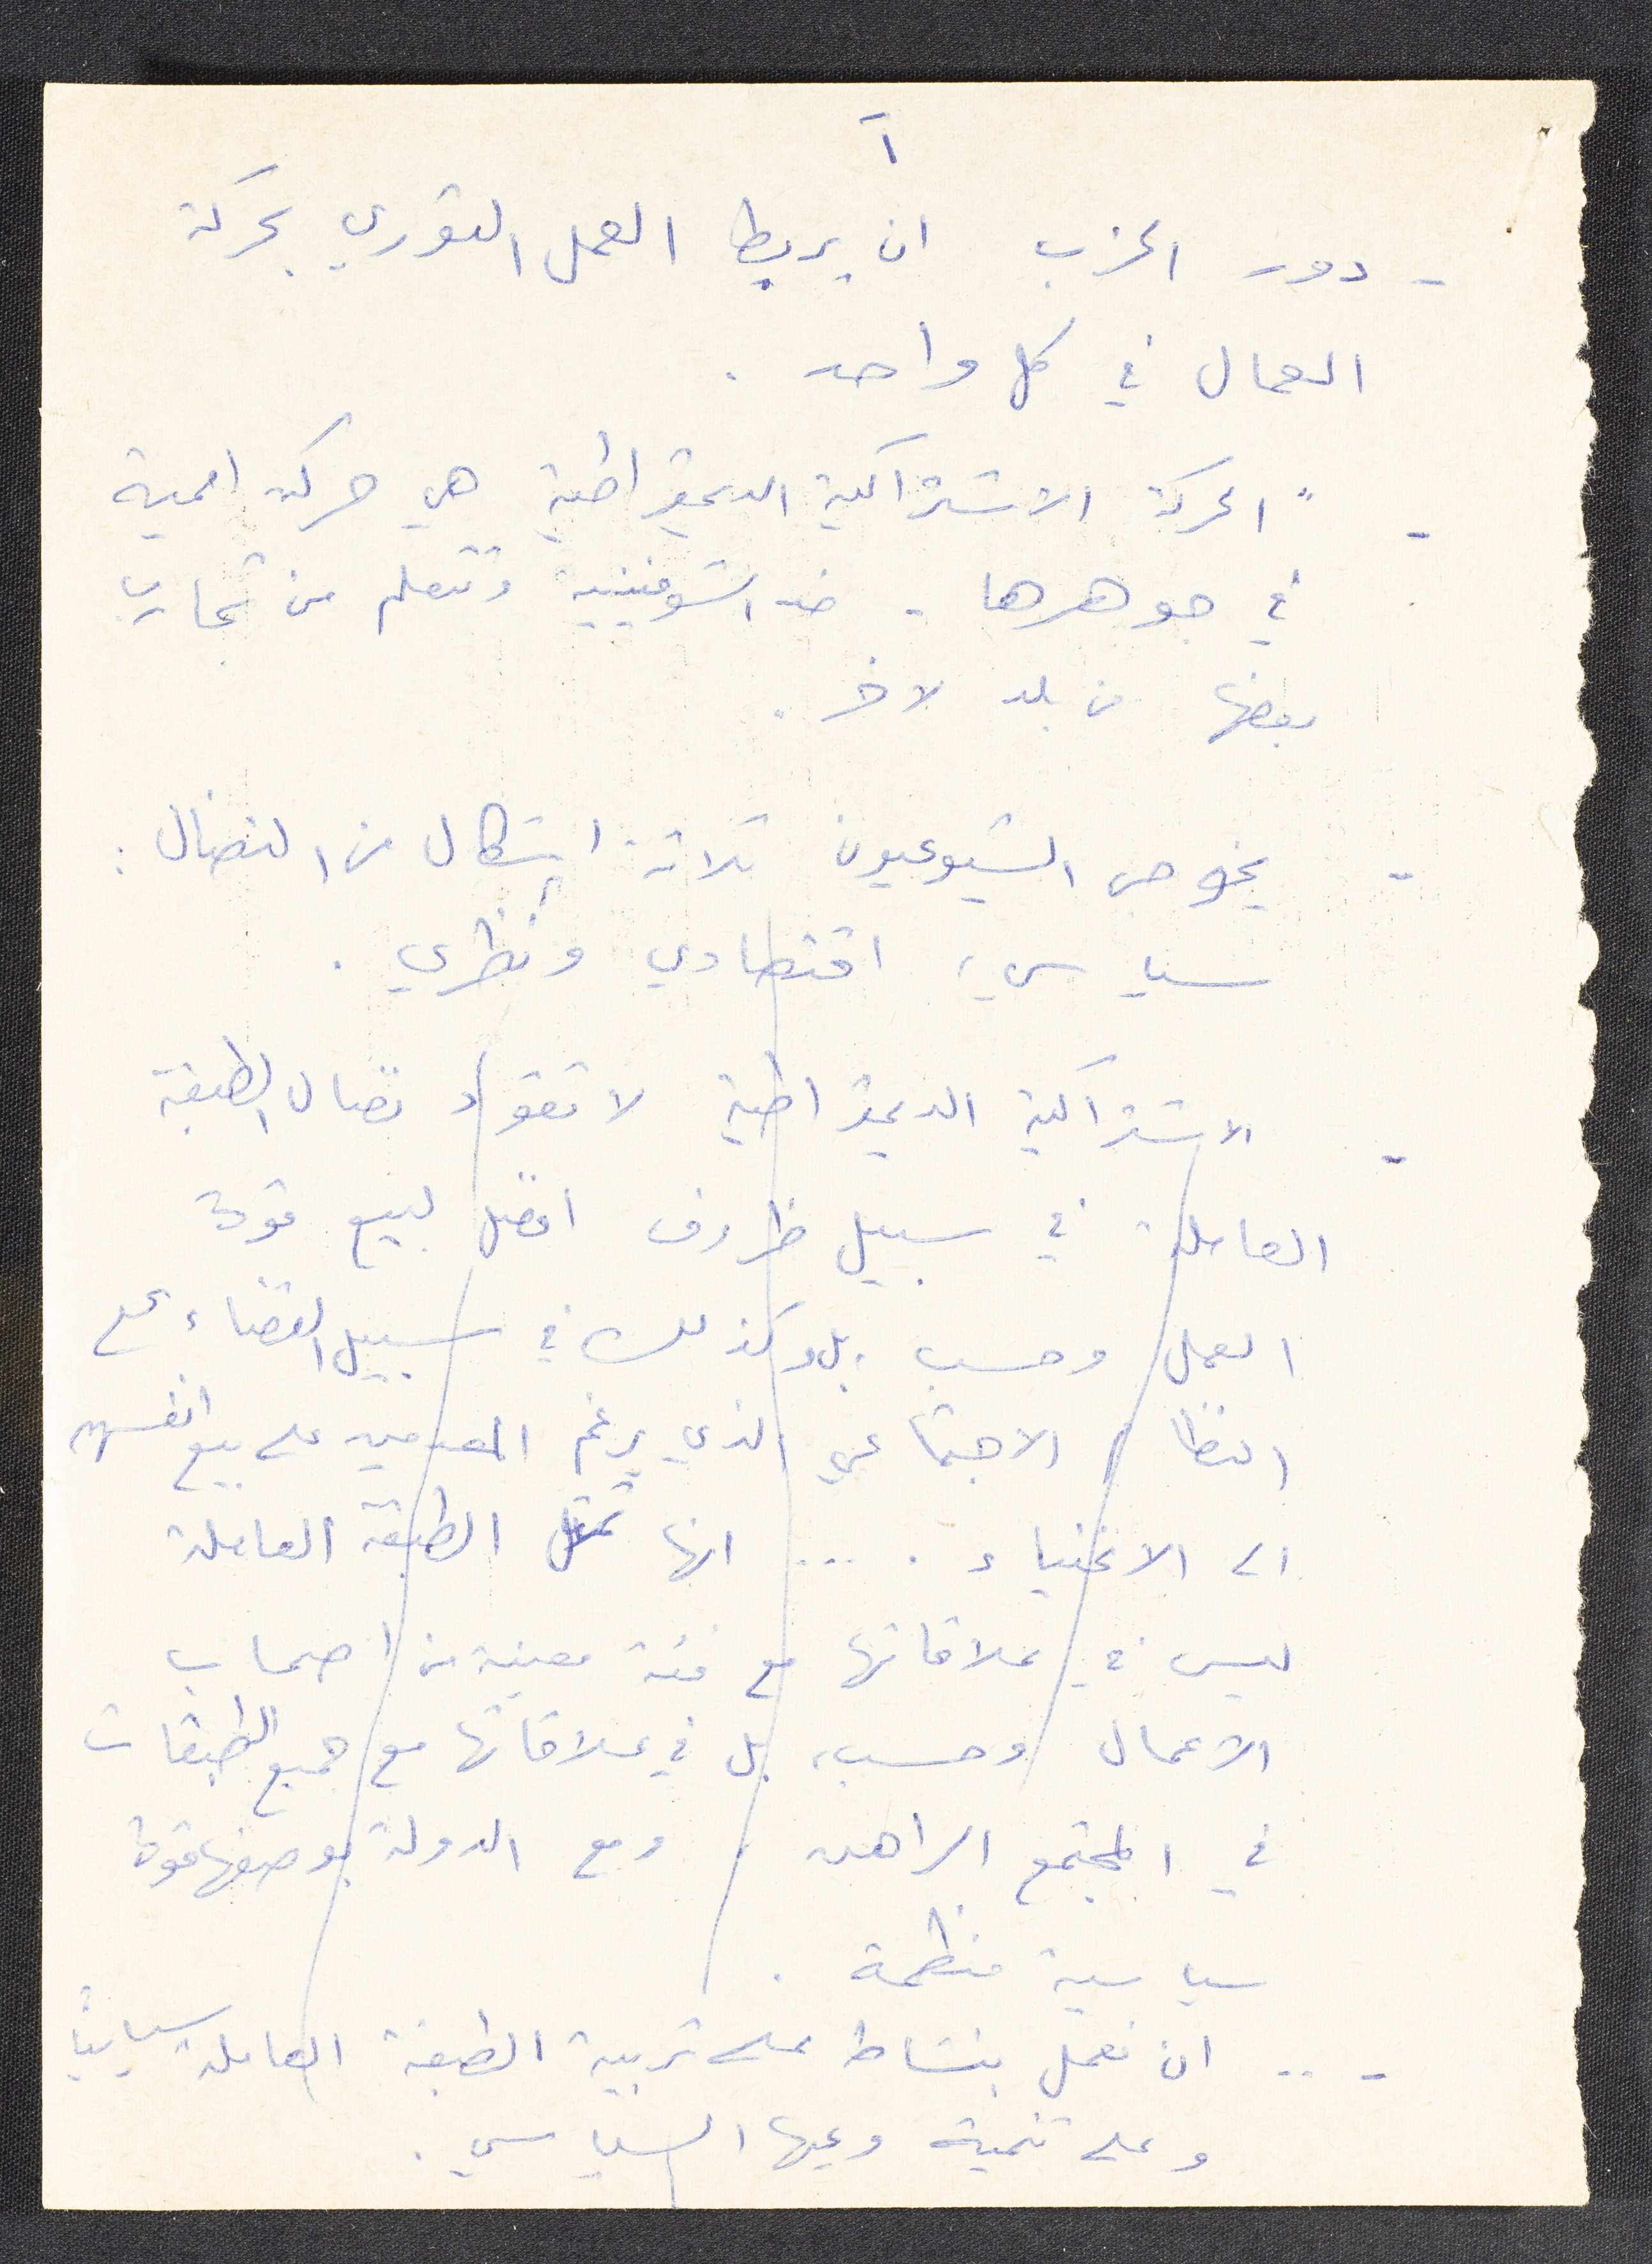 آ
- دور الحزب ان يربط العمل الثوري بحركة
العمال في كل واحد .
- " الحركة الاشتراكية الديمقراطية هي حركة اممية
في جوهرها - ضد الشوفينية وتتعلم من تجارب
بعضها من بلد لاخر .
- يخوض الشيوعيون ثلاثة اشكال من النضال :
سياسي ، اقتصادي ونظري .
- الاشتراكية الديمقراطية لا تقود نضال الطبقة
العاملة في سبيل ظروف افضل لبيع قوة
العمل وحسب ، بل وكذلك في سبيل القضاء على
النظام الاجتماعي الذي يرغم المعدمين على بيع انفسهم
الى الاغنياء . ... انها تمثل الطبقة العاملة
ليس في علاقاتها مع فئة معينة من اصحاب
الاعمال وحسب ، بل في علاقاتها مع جميع الطبقات
في المجتمع الراهن ، ومع الدولة بوصفها قوة
سياسية منظمة .
- .. ان نعمل بنشاط على تربية الطبقة العاملة سياسياً
وعلى تنمية وعيها السياسي .